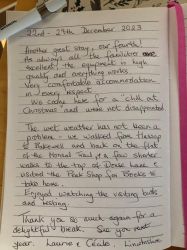 22nd - 29th December 2023
Another great stay, our fourth!
As always all the familiar are
excellent: the equipment is high
quality and everything works.
Very comfortable accommodation
in every respect.
We came here for a chill out
Christmas and were not disappointed.
The wet weather has not been a
problem - we walked from Hassop
to Bakewell and back on the flat
of the Monsal Trail, + a few shorter
walks to the top of Dove Lane &
visited the Peak Shop for Books to
take home.
Enjoyed watching the visiting birds
and resting.
Thank you so much again for a
delightful break. See you next
year. Laurie & Lincolnshire